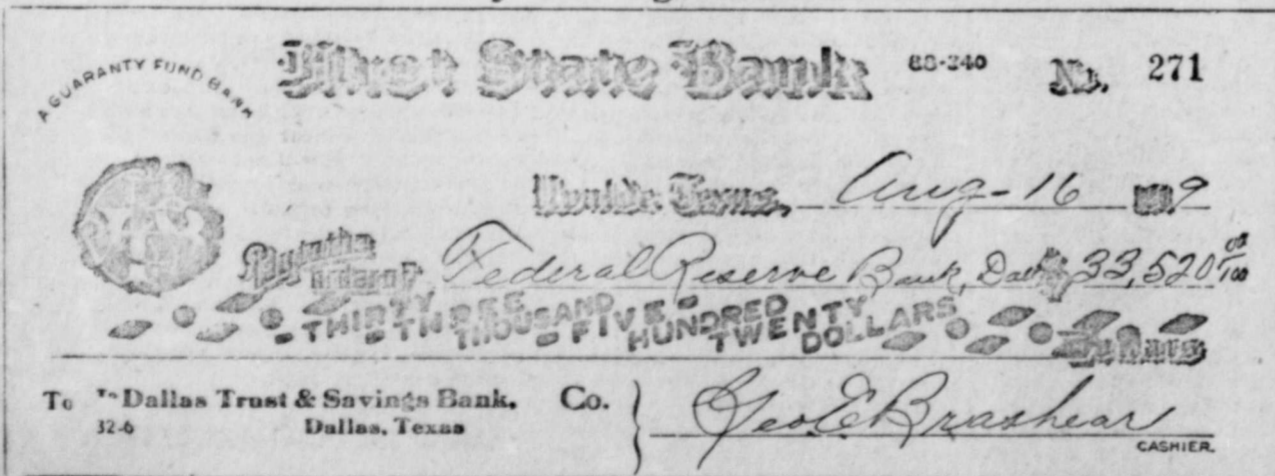 A GUARANTY FUND BANK
First State Bank 88-240 No. 271
Texas, Aug-16 1919
Pay to the order of Federal Reserve Bank, Dallas $33,520 00/100
THIRTY THREE THOUSAND FIVE HUNDRED TWENTY DOLLARS Dollars
To Dallas Trust & Savings Bank. Co.
32-6 Dallas, Texas
Geo E Brashear
CASHIER.